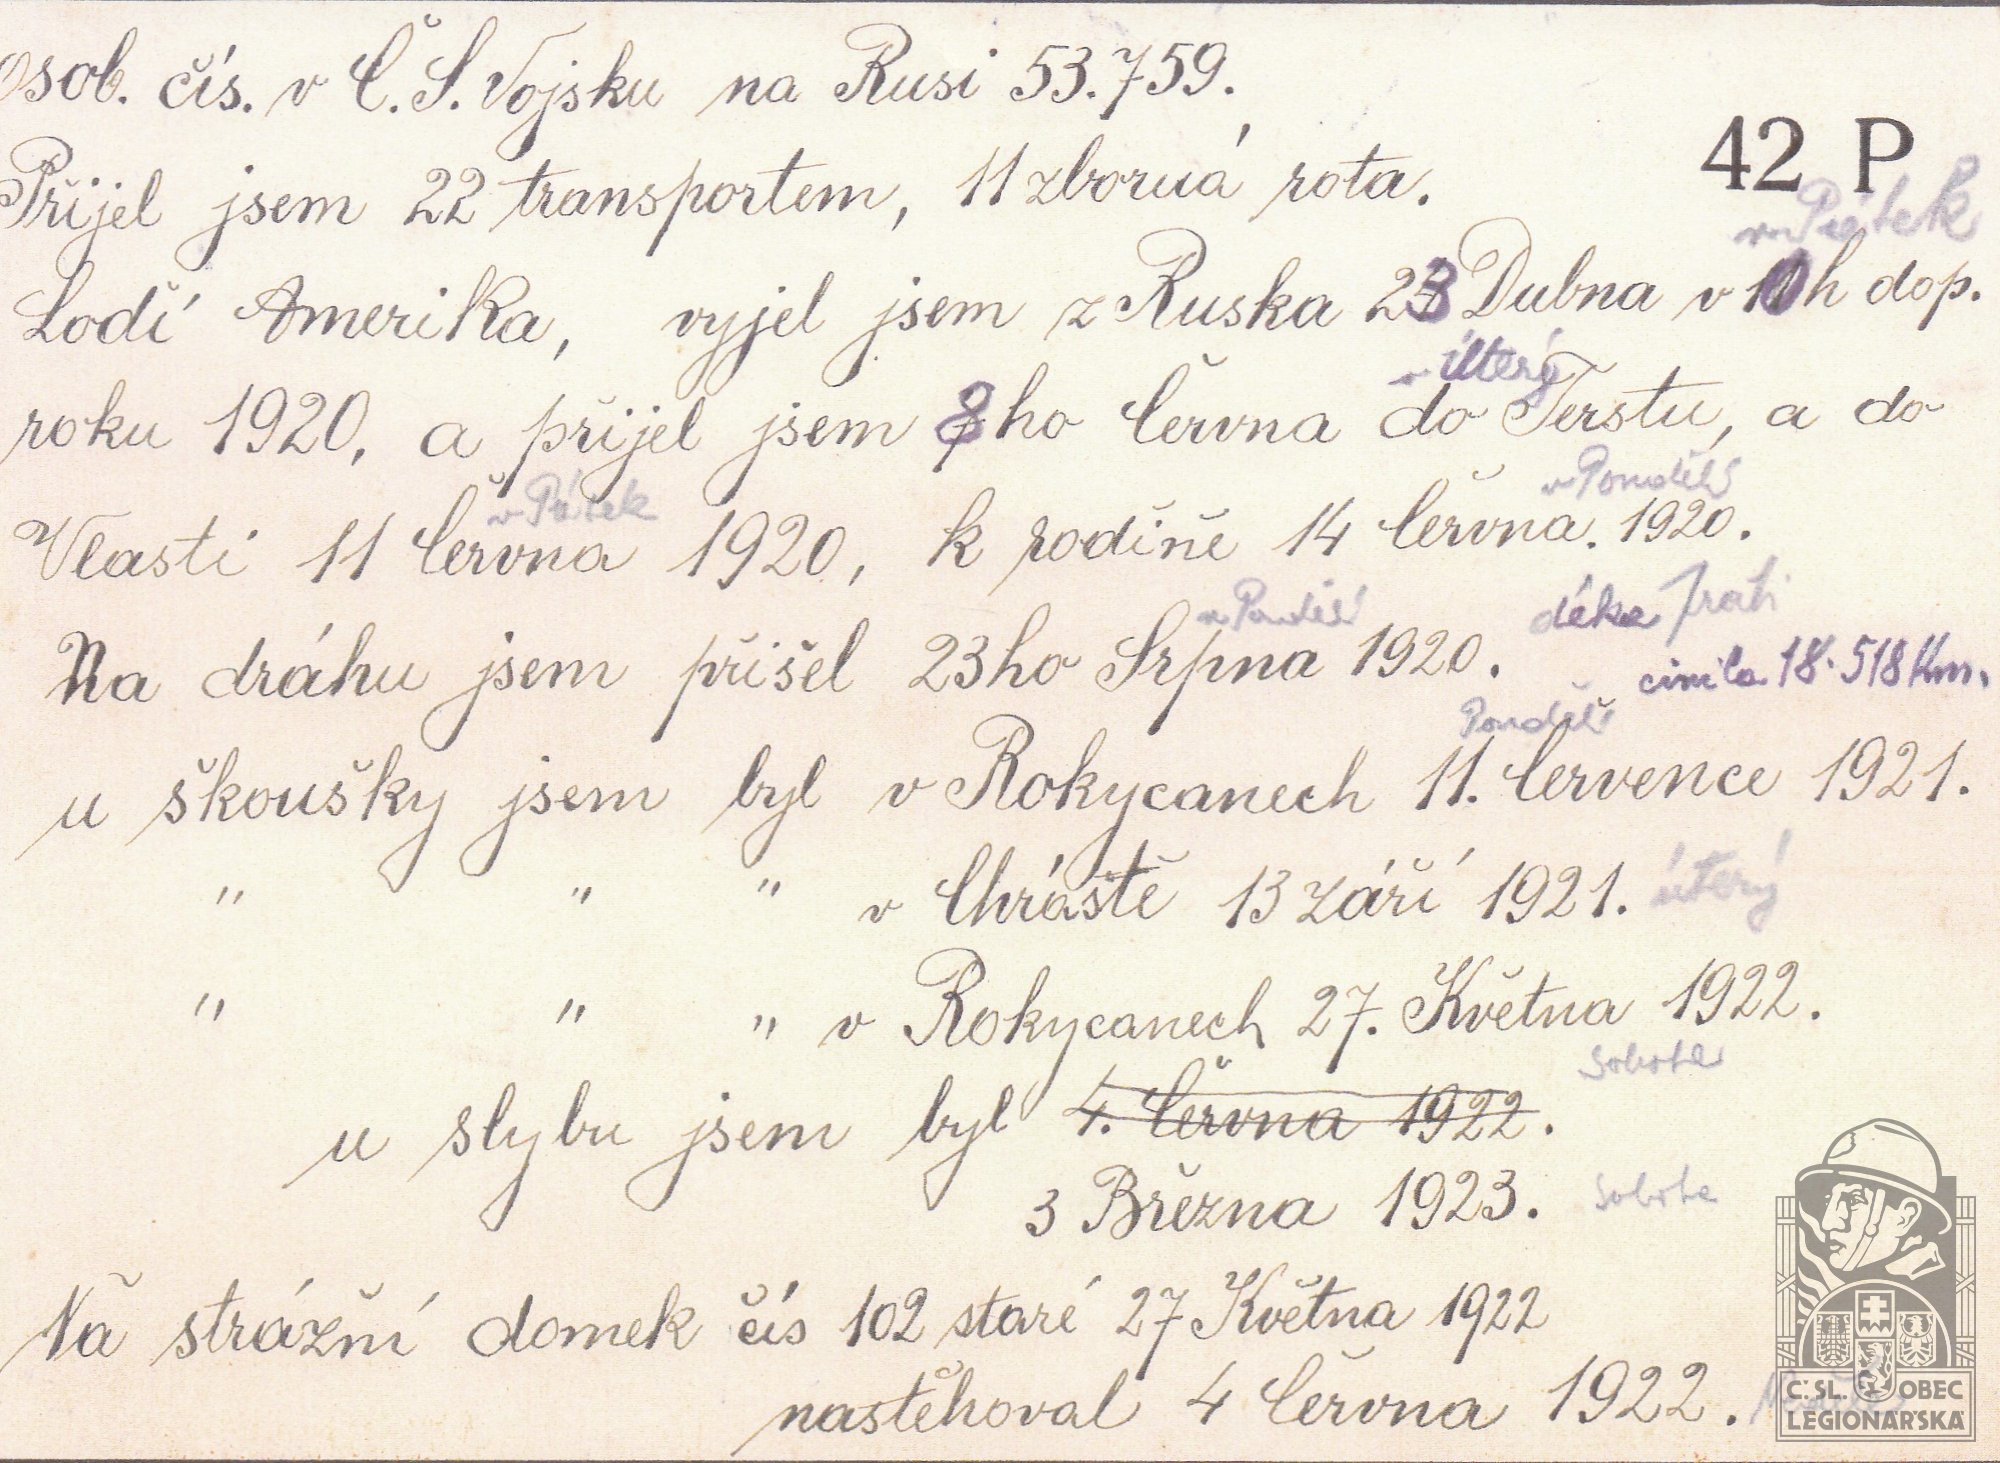 Osob. čís. v Č.S. Vojsku na Rusi 53.759.
42 P
Přijel jsem 22 transportem, 11 zborná rota.
v Pátek
Lodí Amerika, vyjel jsem z Ruska 23 Dubna v 10h dop.
v úterý
roku 1920, a přijel jsem 8ho Června do Terstu, a do
v Pátek
v Pondělí
Vlasti 11 Června 1920, k rodině 14 Června. 1920.
v Pondělí
déka Trati
Na dráhu jsem přišel 23ho Srpna 1920.
cinila 18.518 Km.
Pondělí
u škoušky jsem byl v Rokycanech 11. Července 1921.
" " " v Chrástě 13 Září 1921. úterý
" " " v Rokycanech 27. Května 1922.
Sobota
u slybu jsem byl 4. Června 1922.
3 Března 1923. Sobota
Na strážní domek čís 102 staré 27 Května 1922
nastěhoval 4 Června 1922.
Č.SL. OBEC
LEGIONÁŘSKÁ